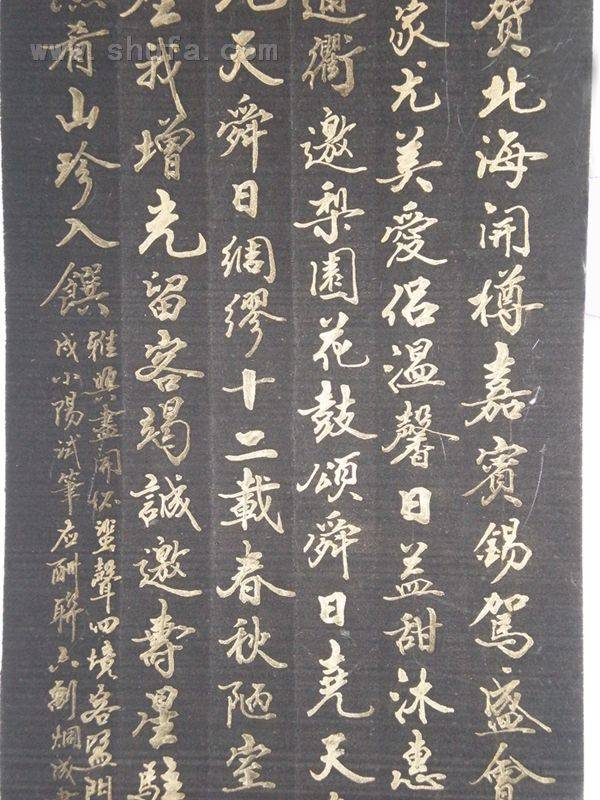 贺北海開樽嘉賓錫駕盛會
家尤美愛侣温馨日益甜沐惠
通衢邀梨園花鼓頌舜日堯天
天舜日綢繆十二載春秋陋室
我增光留客竭誠邀壽星駐
肴山珍入饌
雅興盡開怀蜚聲四境客盈門
戌小陽试筆应酬联六劃炯成
www.shufa.com